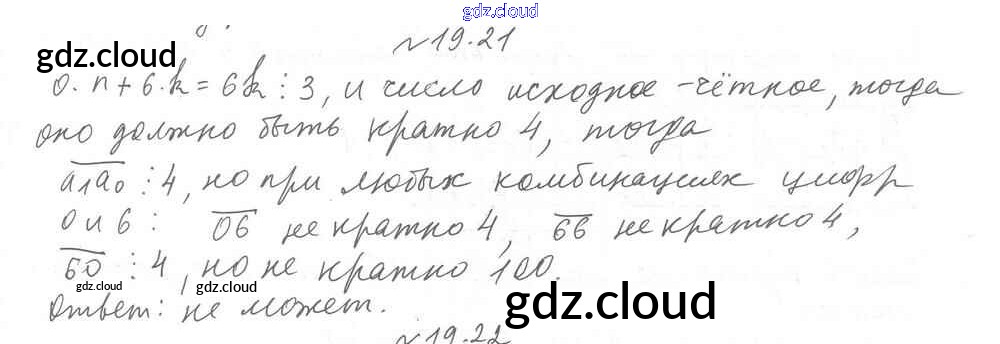 gdz.cloud
№19.21
gdz.cloud
0·n+6·k=6k⋮3, и число исходное -чётное, тогда
оно должно быть кратно 4, тогда
a₁a₀ ⋮4, но при любых комбинациях цифр
0 и 6: 06 не кратно 4, 66 не кратно 4,
60 ⋮4, но не кратно 100.
gdz.cloud gdz.cloud
Ответ: не может.
gdz.cloud
№19.22